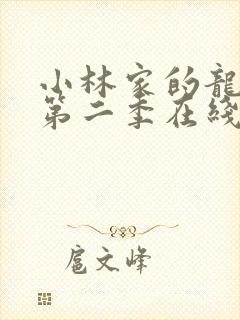 小林家的龍
第二季在綫
扈文峰